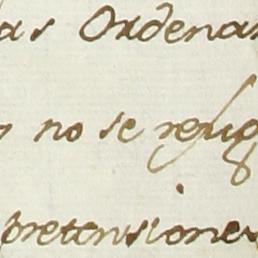 as Ordenan
no se refug
pretensiones